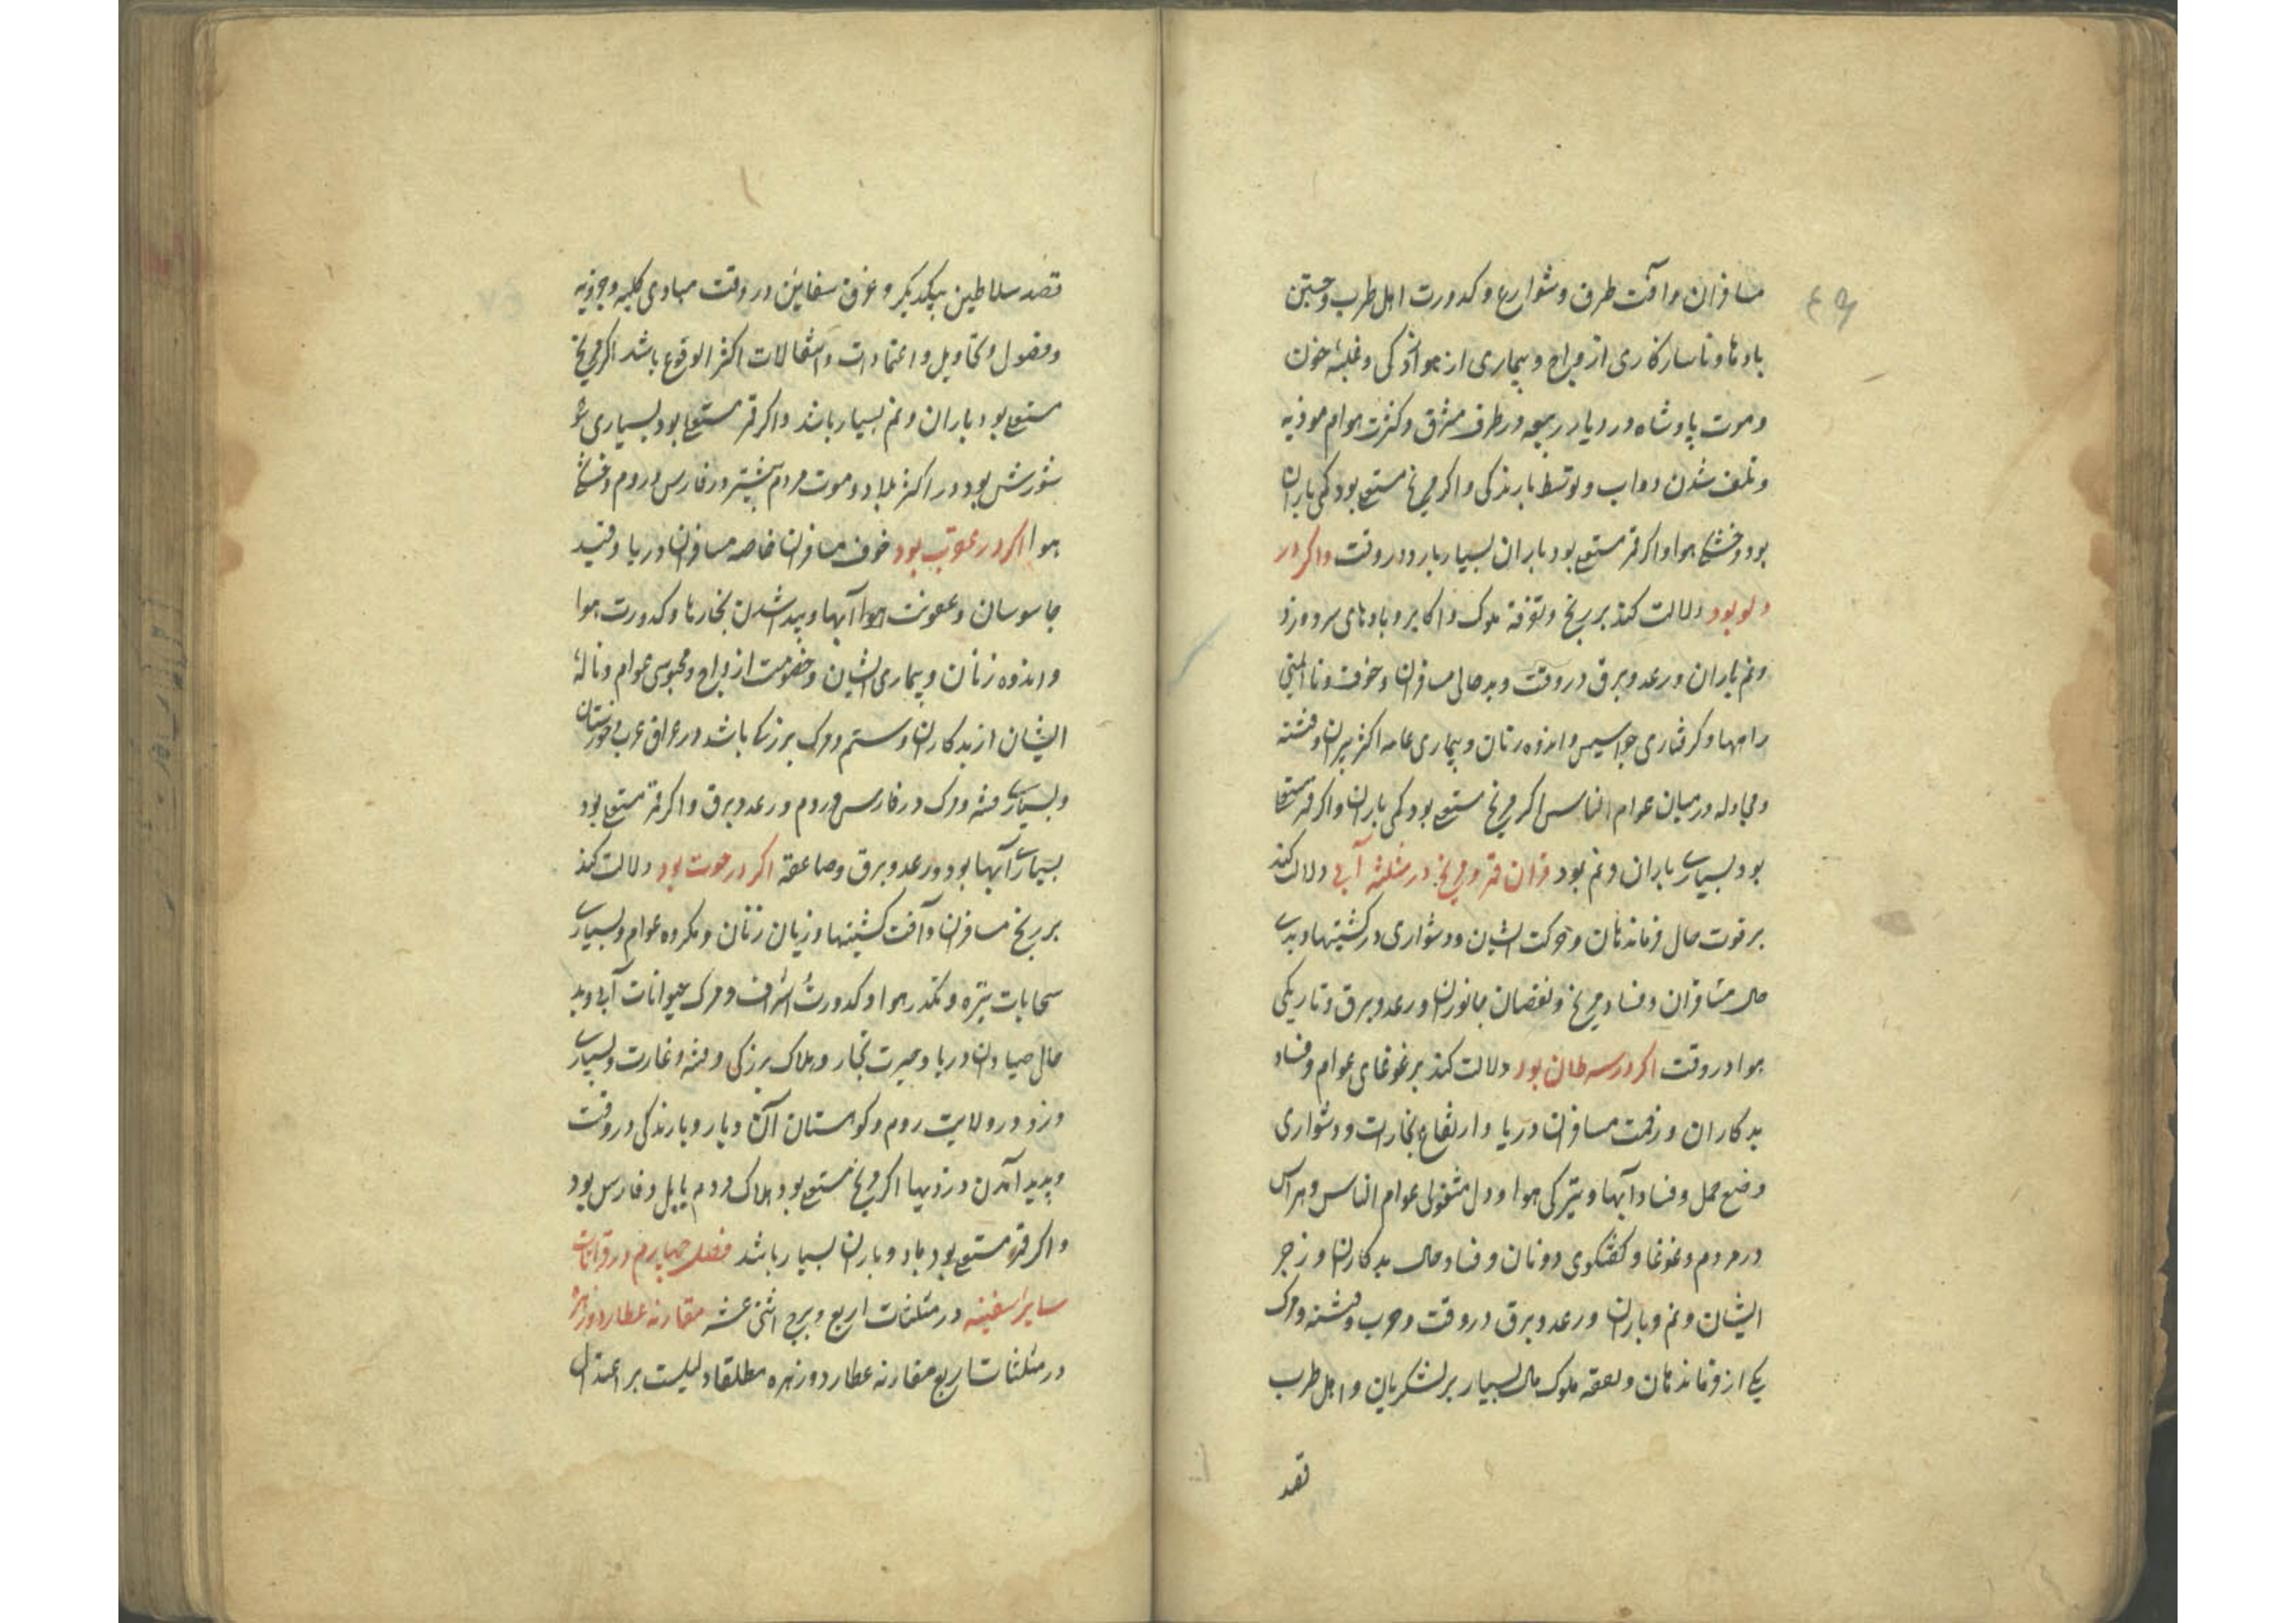 مسافران و آفت طرق و شوارع و کدورت اهل طرب و جستن
بادها و ناسازکاری ازواج و بیماری از هوازدکی و غلبهٔ خون
و موت پادشاه در دیار ربیعه و طرف مشرق و کثرت هوام موذیه
و تلف شدن دواب و توسط بارندکی و اکر مریخ مستعلی بود کمی باران
بود و خشکی هوا و اکر قمر مستعلی بود باران بسیار بارد در وقت و اکر در
دلو بود دلالت کند بر رنج و تفرقه ملوک و اکابر و بادهای سرد و زد
و نم باران و رعد و برق در وقت و بدحالی مسافران و خوف و ناایمنی
راهها و کرفتاری جواسیس و اندوه زنان و بیماری عامه اکثر پیران و فتنه
و مجادله در میان عوام الناس اکر مریخ مستعلی بود کمی باران و اکر قمر مستعلی
بود بسیاری باران و نم بود قران قمر و مریخ در مثلثه آبی دلالت کند
بر قوت حال فرماندهان و حرکت ایشان و دشواری در کشتیها و بدی
حال مسافران و فساد مریخ و نقصان جانوران و رعد و برق و تاریکی
هوا در وقت اکر در سرطان بود دلالت کند بر غوغای عوام و فساد
بدکاران و زحمت مسافران دریا و ارتفاع بخارات و دشواری
وضع حمل و فساد آبها و تیرکی هوا و دل مشغولی عوام الناس و هراس
در مردم و غوغا و کفتکوی دونان و فساد حال بدکاران و زجر
ایشان و نم و باران و رعد و برق در وقت و حرب و فتنه و مرک
یکی از فرماندهان و نفقه ملوک مال بسیار بر لشکریان و اهل طرب
قصد
قصد سلاطین بیکدیکر و غرق سفاین در وقت مبادی کلیه و جزویه
و فصول و تحاویل و اعتمادات و اتصالات اکثر الوقوع باشد اکر مریخ
مستعلی بود باران و نم بسیار باشد و اکر قمر مستعلی بود بسیاری
شورش بود در اکثر بلاد و موت مردم بیشتر در فارس و روم و خشکی
هوا اکر در عقرب بود خوف مسافران خاصه مسافران دریا و قید
جاسوسان و عفونت هوا آبها و پیدا شدن بخارها و کدورت هوا
و اندوه زنان و بیماری ایشان و خصومت ازواج و محبوسی عوام و نالهٔ
ایشان از بدکاران و ستم و مرک بزرکی باشد در عراق عرب و خوزستان
و بسیاری فتنه و مرک در فارس و روم و رعد و برق و اکر قمر مستعلی بود
بسیاری آبها بود و رعد و برق و صاعقه اکر در حوت بود دلالت کند
بر رنج مسافران و آفت کشتیها و زیان زنان و مکروه عوام و بسیاری
سحابات تیره و تکدر هوا و کدورت اشراف و مرک حیوانات آبی و بد
حال صیادان دریا و حیرت تجار و هلاک بزرکی و فتنه و غارت و بسیاری
دزد در ولایت روم و کوهستان آن دیار و بارندکی در وقت
و پدید آمدن دزدیها اکر مریخ مستعلی بود هلاک مردم بابل و فارس بود
و اکر قمر مستعلی بود باد و باران بسیار باشد فصل چهارم در قرانات
سایر سفلیه در مثلثات اربع و بروج اثنی عشر مقارنه عطارد و زهره
در مثلثات اربع مقارنه عطارد و زهره مطلقا دلیلست بر اعتدال